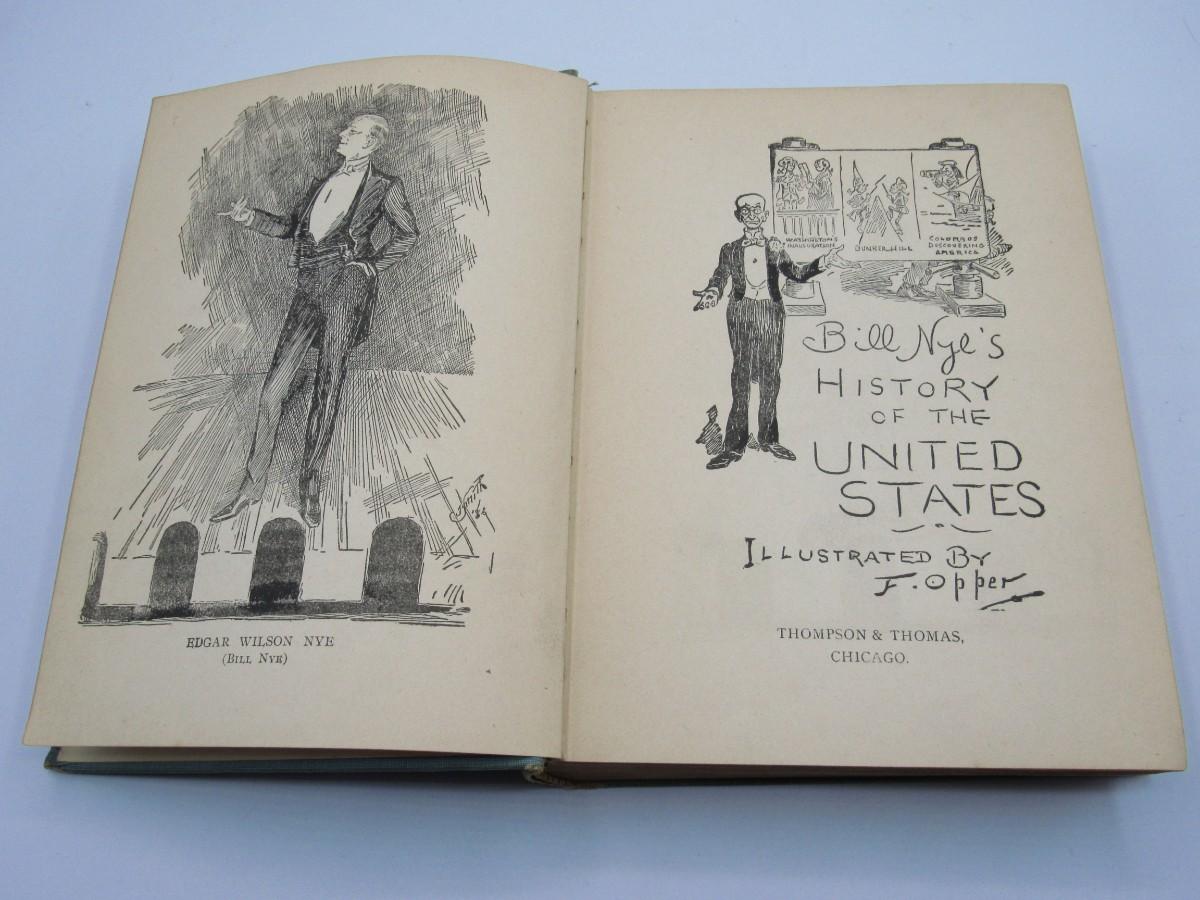 Smith
EDGAR WILSON NYE
(BILL NYE)
WASHINGTON'S
INAUGURATION
BUNKER HILL
COLUMBUS
DISCOVERING
AMERICA
Bill Nye's
HISTORY
OF THE
UNITED
STATES
ILLUSTRATED BY
F. Opper
THOMPSON & THOMAS,
CHICAGO.